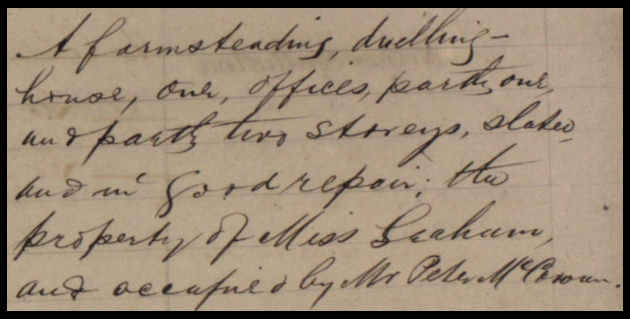 A farmsteading, dwelling-
house, one, offices, partly one,
and partly two storeys, slated
and in good repair; the
property of Miss Graham,
and occupied by Mr Peter McCowan.